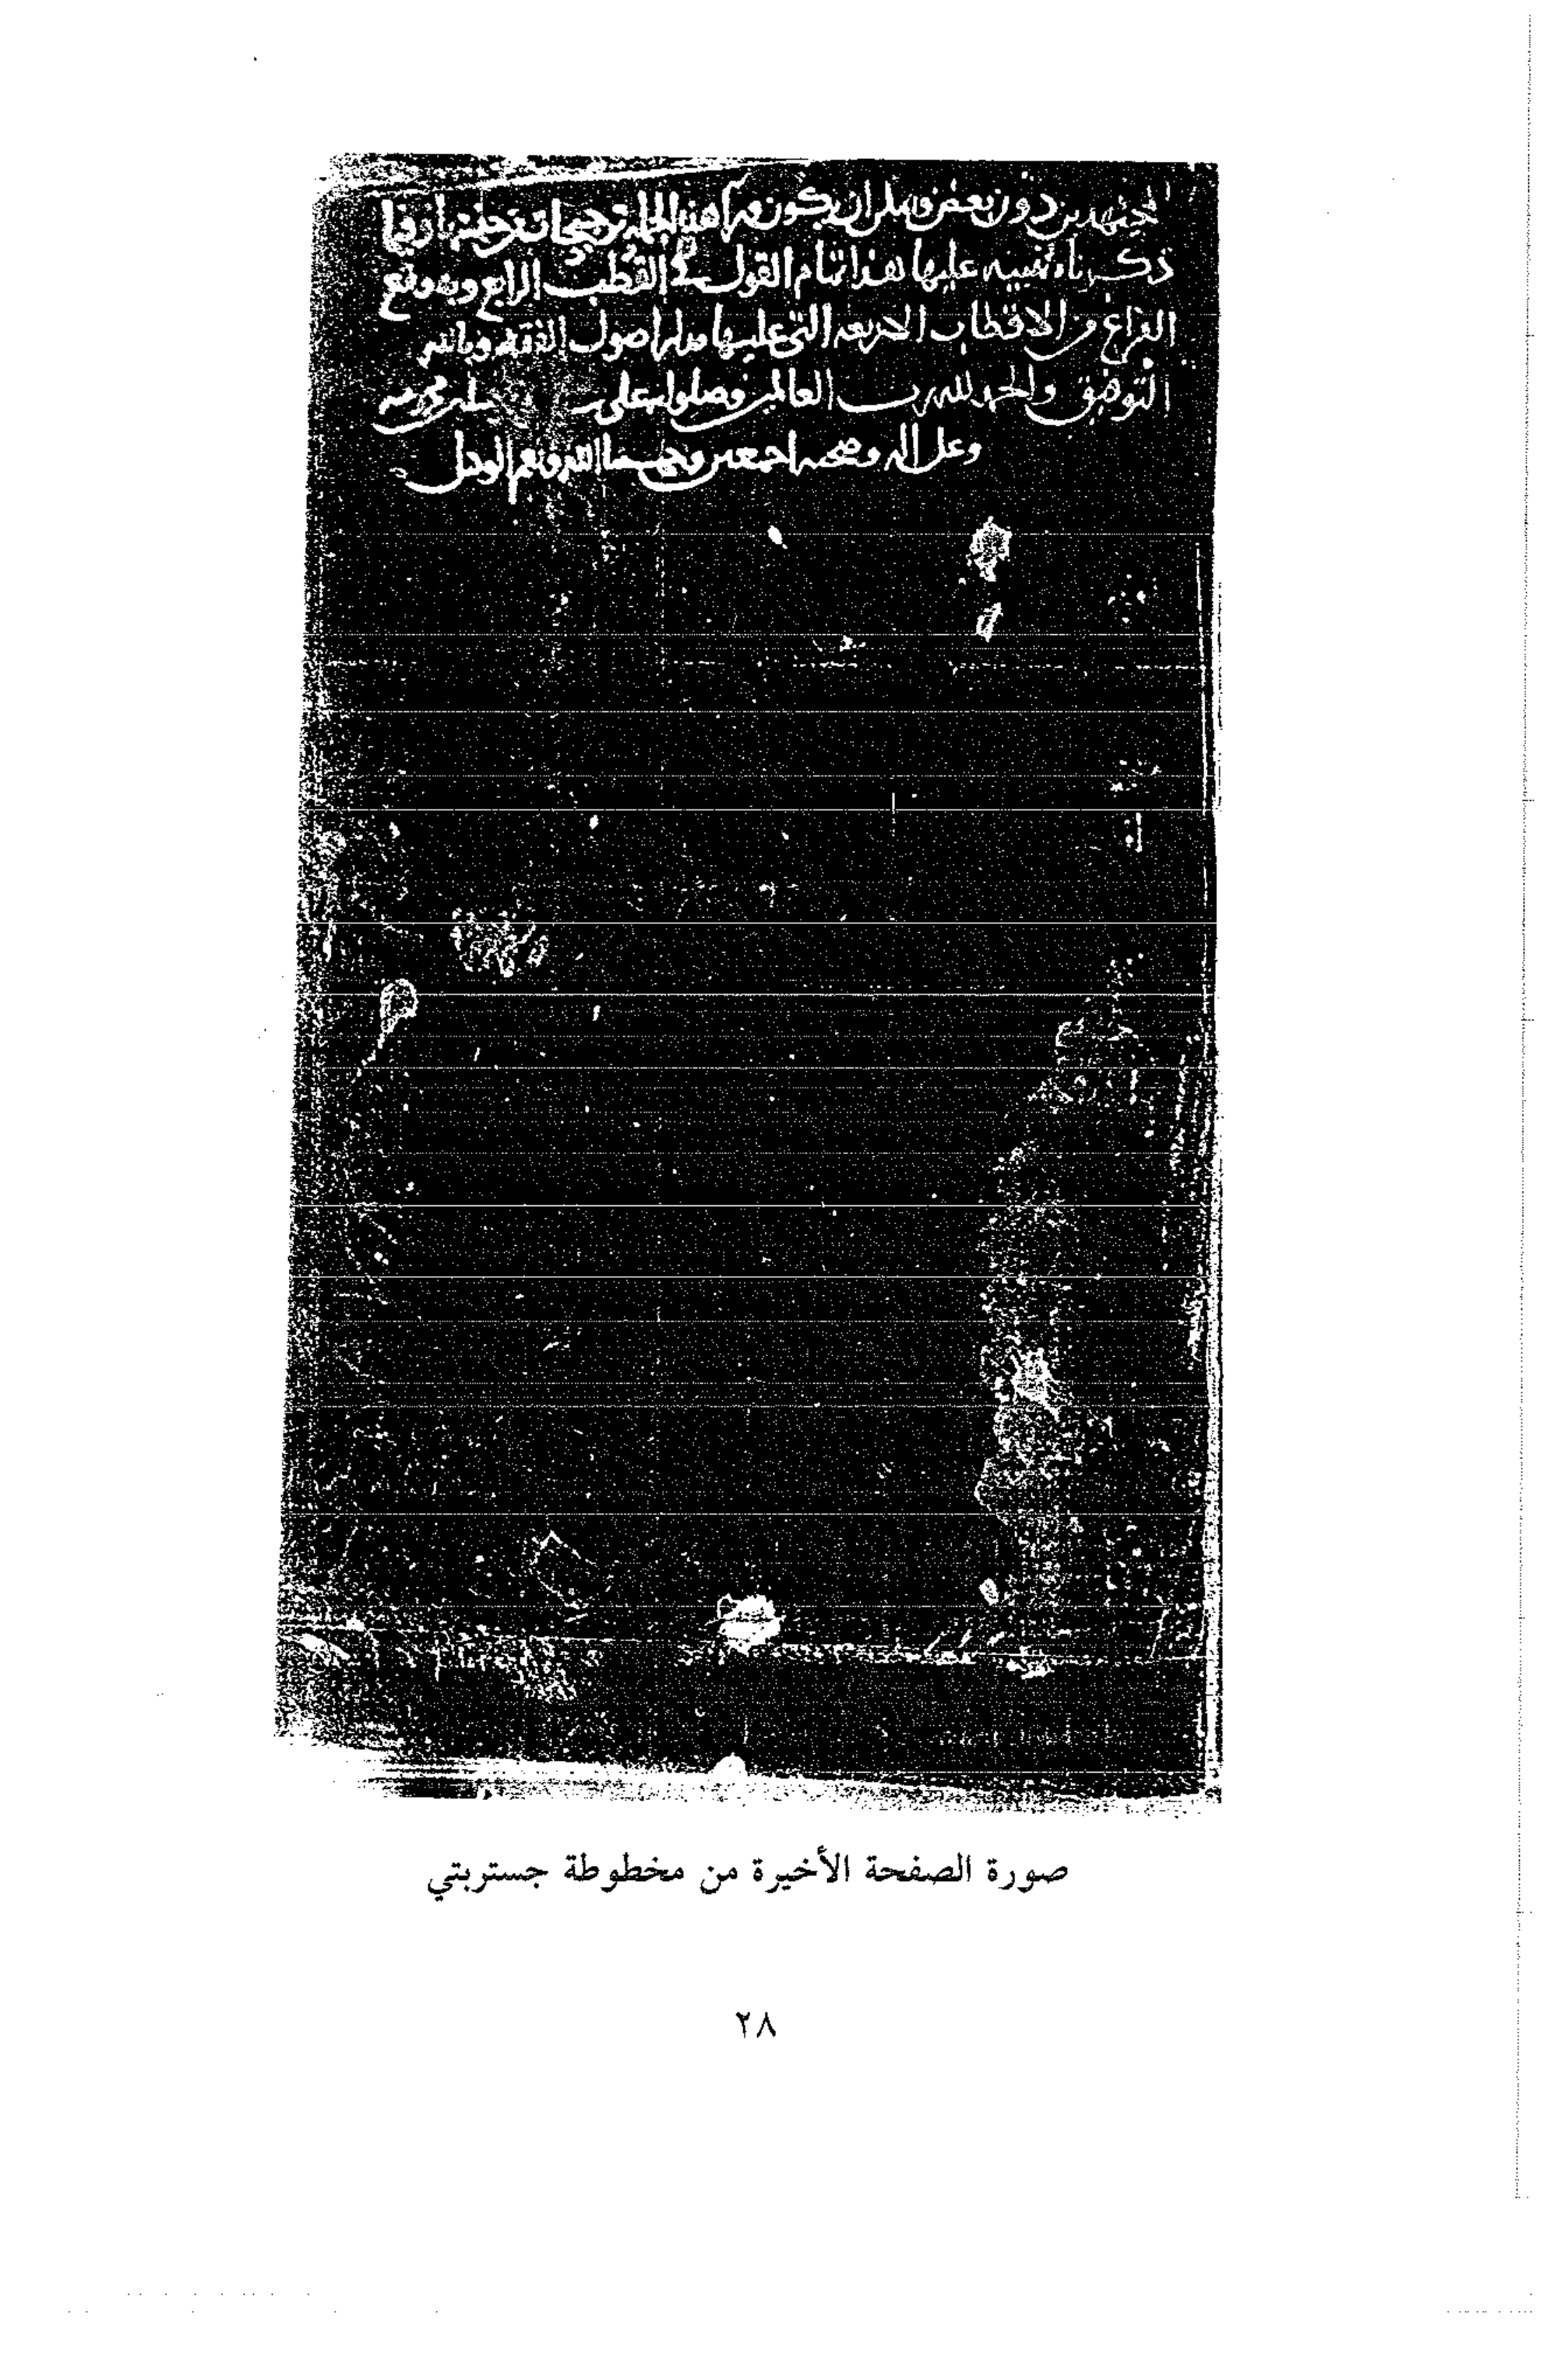 المجتهدين دون بعض وقبل ان يكون هذه الجملة ترجيحات
ذكرناه تنبيه عليها هذا تمام القول في القطب الرابع وبه وقع
الفراغ من الاقطاب الاربعة التي عليها مدار اصول الفقه وبالله
التوفيق والحمد لله رب العالمين وصلواته على محمد
وعلى اله وصحبه اجمعين وحسبنا الله ونعم الوكيل
صورة الصفحة الأخيرة من مخطوطة جستربتي
٢٨